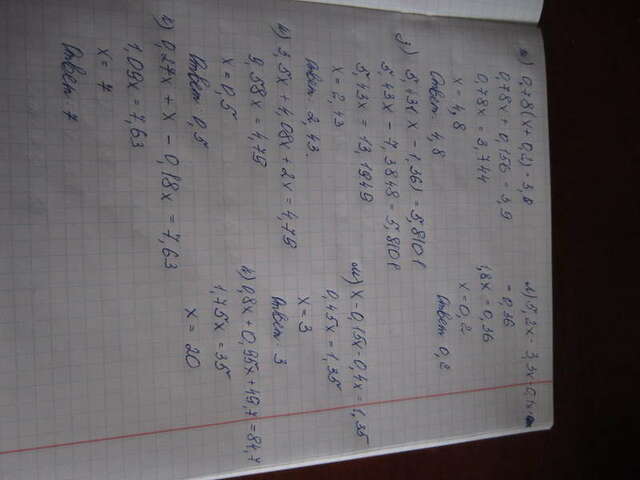 0,78(x+0,2)=3,9
0,78x+0,156=3,9
0,78x=3,744
x=4,8
Ответ 4,8
з) 5,43(x-1,36)=5,8101
5,43x-7,3848=5,8101
5,43x=13,1949
x=2,43
Ответ 2,43.
и) 3,5x+4,08x+2x=4,79
9,58x=4,79
x=0,5
Ответ 0,5
к) 0,27x+x-0,18x=7,63
1,09x=7,63
x=7
Ответ 7
=0,36
1,8x=0,36
x=0,2
Ответ 0,2
x-0,15x-0,4x=1,35
0,45x=1,35
x=3
Ответ 3
0,8x+0,95x+49,7=84,7
1,75x=35
x=20